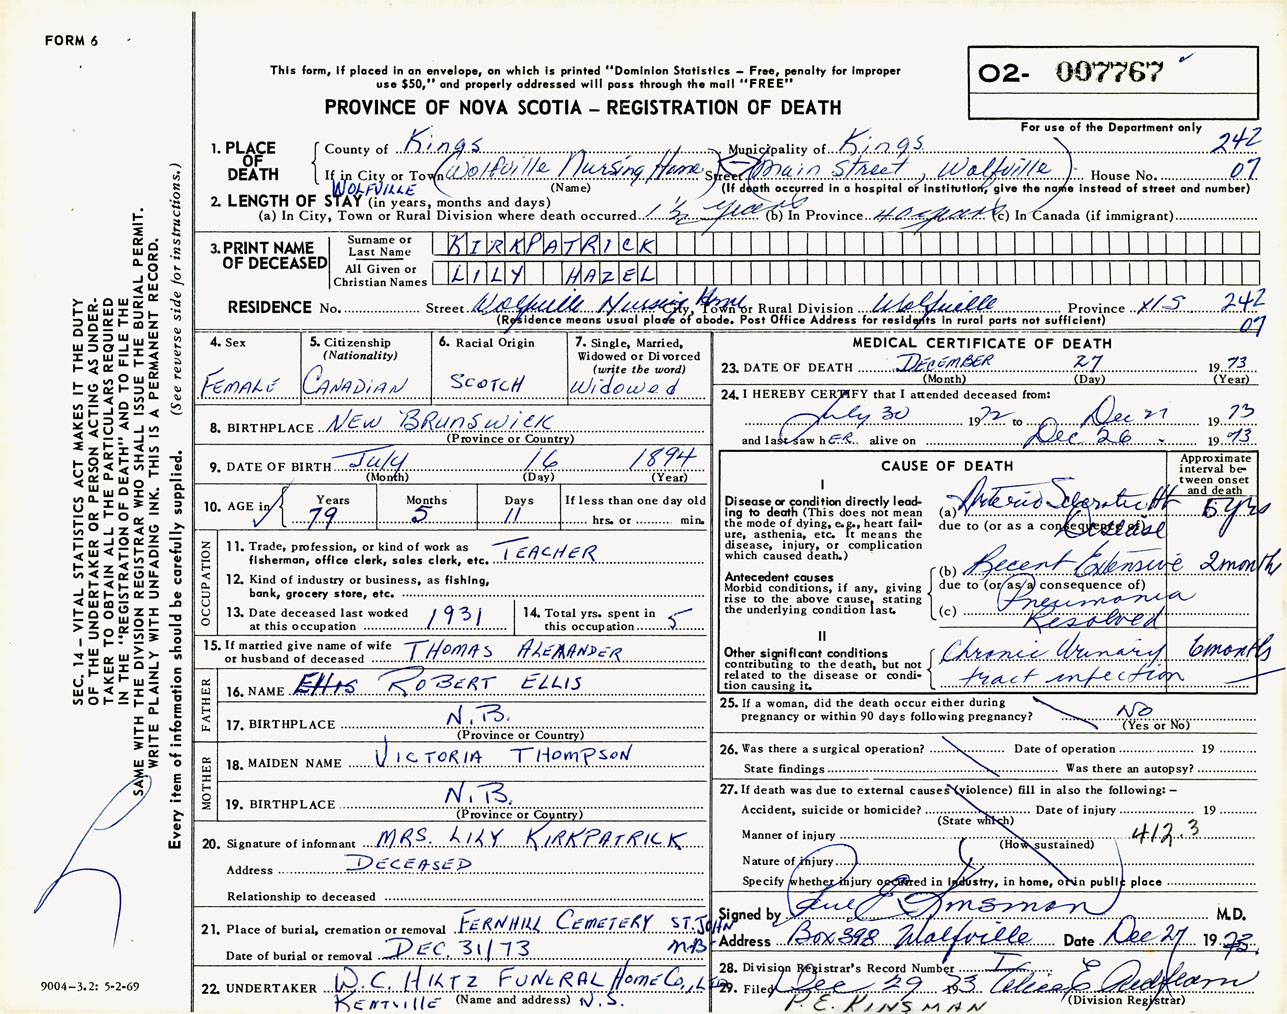 FORM 6
This form, if placed in an envelope, on which is printed "Dominion Statistics – Free, penalty for improper
use $50," and properly addressed will pass through the mail "FREE"
PROVINCE OF NOVA SCOTIA – REGISTRATION OF DEATH
02- 007767
For use of the Department only
1. PLACE OF DEATH
County of Kings Municipality of Kings 242
If in City or Town Wolfville Nursing Home Street Main Street, Wolfville House No. 07
WOLFVILLE (Name) (If death occurred in a hospital or institution, give the name instead of street and number)
2. LENGTH OF STAY (in years, months and days)
(a) In City, Town or Rural Division where death occurred 1 1/2 years (b) In Province 40 years (c) In Canada (if immigrant)
3. PRINT NAME OF DECEASED
Surname or Last Name KIRKPATRICK
All Given or Christian Names LILY HAZEL
RESIDENCE No. Street Wolfville Nursing Home City, Town or Rural Division Wolfville Province N.S 242
(Residence means usual place of abode. Post Office Address for residents in rural parts not sufficient) 07
4. Sex FEMALE
5. Citizenship (Nationality) CANADIAN
6. Racial Origin SCOTCH
7. Single, Married, Widowed or Divorced (write the word) Widowed
8. BIRTHPLACE NEW BRUNSWICK
(Province or Country)
9. DATE OF BIRTH July 16 1894
(Month) (Day) (Year)
10. AGE in Years 79 Months 5 Days 11 If less than one day old hrs. or min.
OCCUPATION
11. Trade, profession, or kind of work as fisherman, office clerk, sales clerk, etc. TEACHER
12. Kind of industry or business, as fishing, bank, grocery store, etc.
13. Date deceased last worked at this occupation 1931
14. Total yrs. spent in this occupation 5
15. If married give name of wife or husband of deceased THOMAS ALEXANDER
FATHER
16. NAME Ellis ROBERT ELLIS
17. BIRTHPLACE N.B.
(Province or Country)
MOTHER
18. MAIDEN NAME VICTORIA THOMPSON
19. BIRTHPLACE N.B.
(Province or Country)
20. Signature of informant MRS. LILY KIRKPATRICK
Address DECEASED
Relationship to deceased
21. Place of burial, cremation or removal FERNHILL CEMETERY ST. JOHN
Date of burial or removal DEC. 31/73 N.B.
22. UNDERTAKER W.C. HILTZ FUNERAL HOME CO., LTD
KENTVILLE (Name and address) N.S.
MEDICAL CERTIFICATE OF DEATH
23. DATE OF DEATH DECEMBER 27 1973
(Month) (Day) (Year)
24. I HEREBY CERTIFY that I attended deceased from:
July 30 1972 to Dec 27 1973
and last saw hER alive on Dec 26 1973
CAUSE OF DEATH
Approximate interval between onset and death
I
Disease or condition directly leading to death (This does not mean the mode of dying, e.g., heart failure, asthenia, etc. It means the disease, injury, or complication which caused death.)
(a) Arterio Sclerotic Ht Disease 5 yrs
due to (or as a consequence of)
Antecedent causes
Morbid conditions, if any, giving rise to the above cause, stating the underlying condition last.
(b) Recent Extensive 2 months
due to (or as a consequence of)
Pneumonia
(c) Resolved
II
Other significant conditions contributing to the death, but not related to the disease or condition causing it.
Chronic Urinary 6 months
tract infection
25. If a woman, did the death occur either during pregnancy or within 90 days following pregnancy? No
(Yes or No)
26. Was there a surgical operation? Date of operation 19
State findings Was there an autopsy?
27. If death was due to external causes (violence) fill in also the following: –
Accident, suicide or homicide? Date of injury 19
(State which)
Manner of injury 412.3
(How sustained)
Nature of injury
Specify whether injury occurred in Industry, in home, or in public place
Signed by Paul E Kinsman M.D.
Address Box 398 Wolfville Date Dec 27 1973.
28. Division Registrar's Record Number
29. Filed Dec 29 1973
P.E. KINSMAN (Division Registrar)
SEC. 14 – VITAL STATISTICS ACT MAKES IT THE DUTY
OF THE UNDERTAKER OR PERSON ACTING AS UNDER-
TAKER TO OBTAIN ALL THE PARTICULARS REQUIRED
IN THE "REGISTRATION OF DEATH" AND TO FILE THE
SAME WITH THE DIVISION REGISTRAR WHO SHALL ISSUE THE BURIAL PERMIT.
WRITE PLAINLY WITH UNFADING INK. THIS IS A PERMANENT RECORD.
Every item of information should be carefully supplied. (See reverse side for instructions.)
9004-3.2: 5-2-69